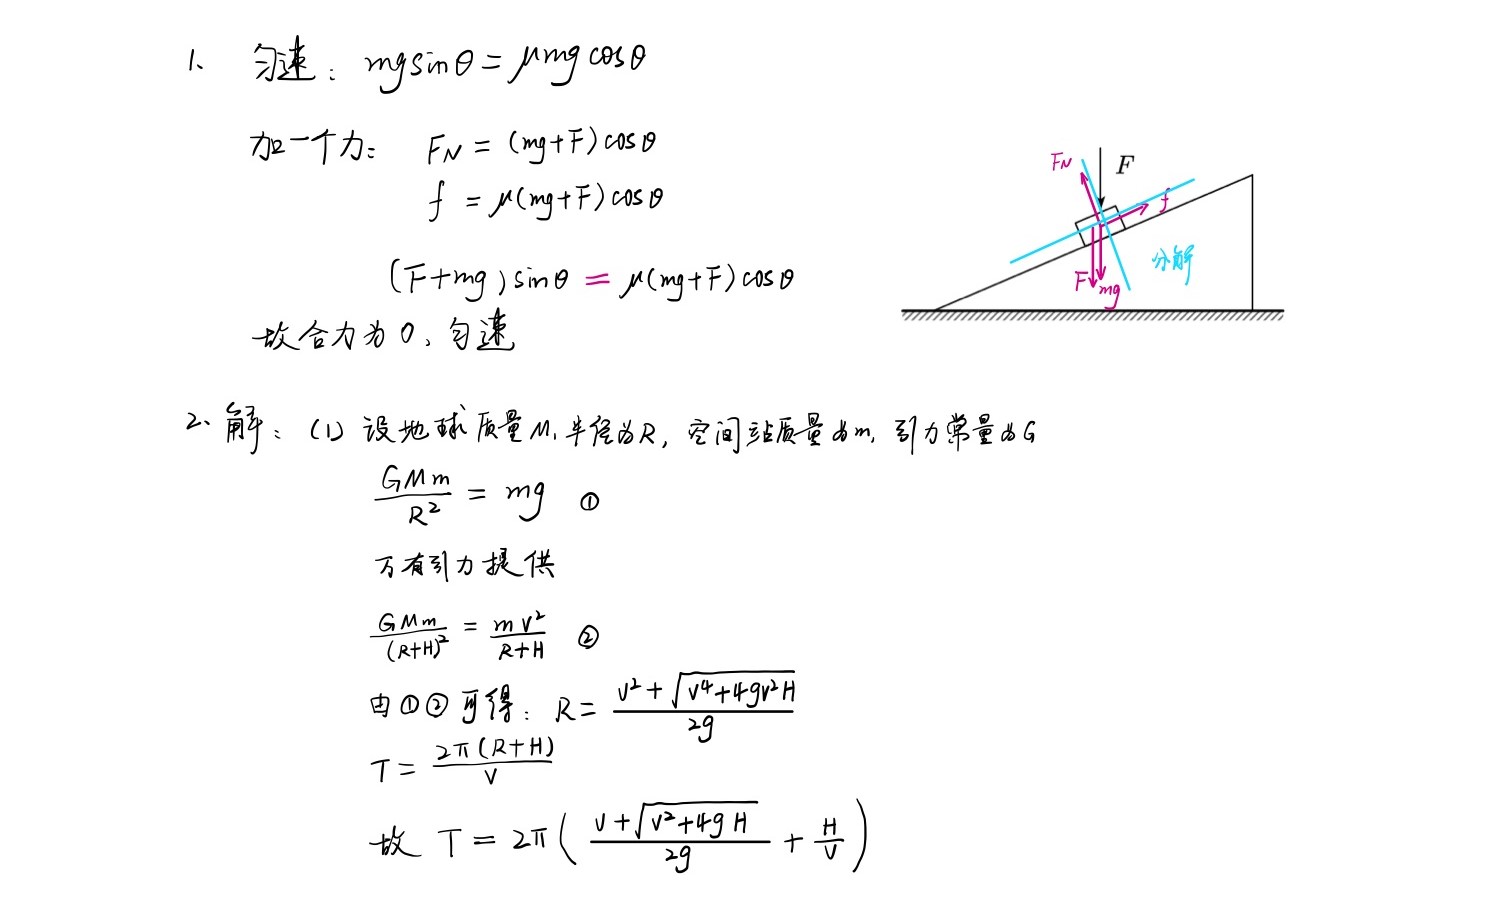 1、 匀速：mgsinθ = μmgcosθ
加一个力： F_N = (mg+F)cosθ
f = μ(mg+F)cosθ
(F+mg)sinθ = μ(mg+F)cosθ
故合力为0、匀速
F_N
F
f
分解
F
mg
2、解：(1) 设地球质量M、半径为R，空间站质量为m，引力常量为G
GMm/R² = mg ①
万有引力提供
GMm/(R+H)² = mv²/(R+H) ②
由①②可得：R = (v²+√(v⁴+4gv²H))/2g
T = 2π(R+H)/v
故 T = 2π((v+√(v²+4gH))/2g + H/v)